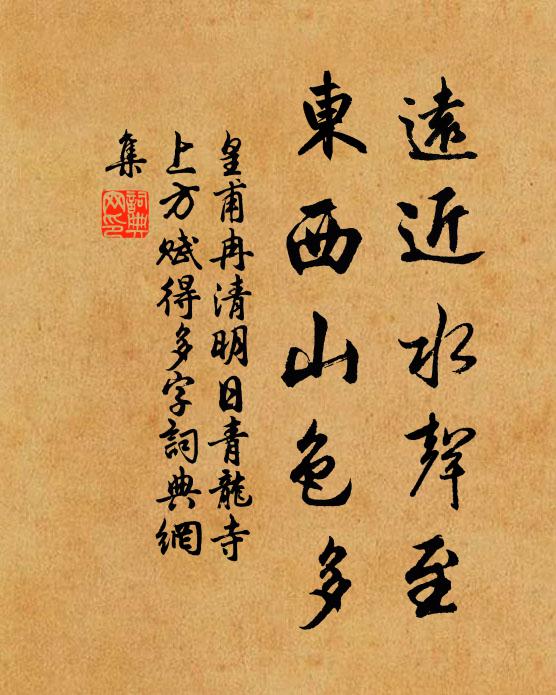 遠近水聲至
東西山色多
皇甫冉清明日青龍寺
上方賦得多字詞典網
集
詞典
网印